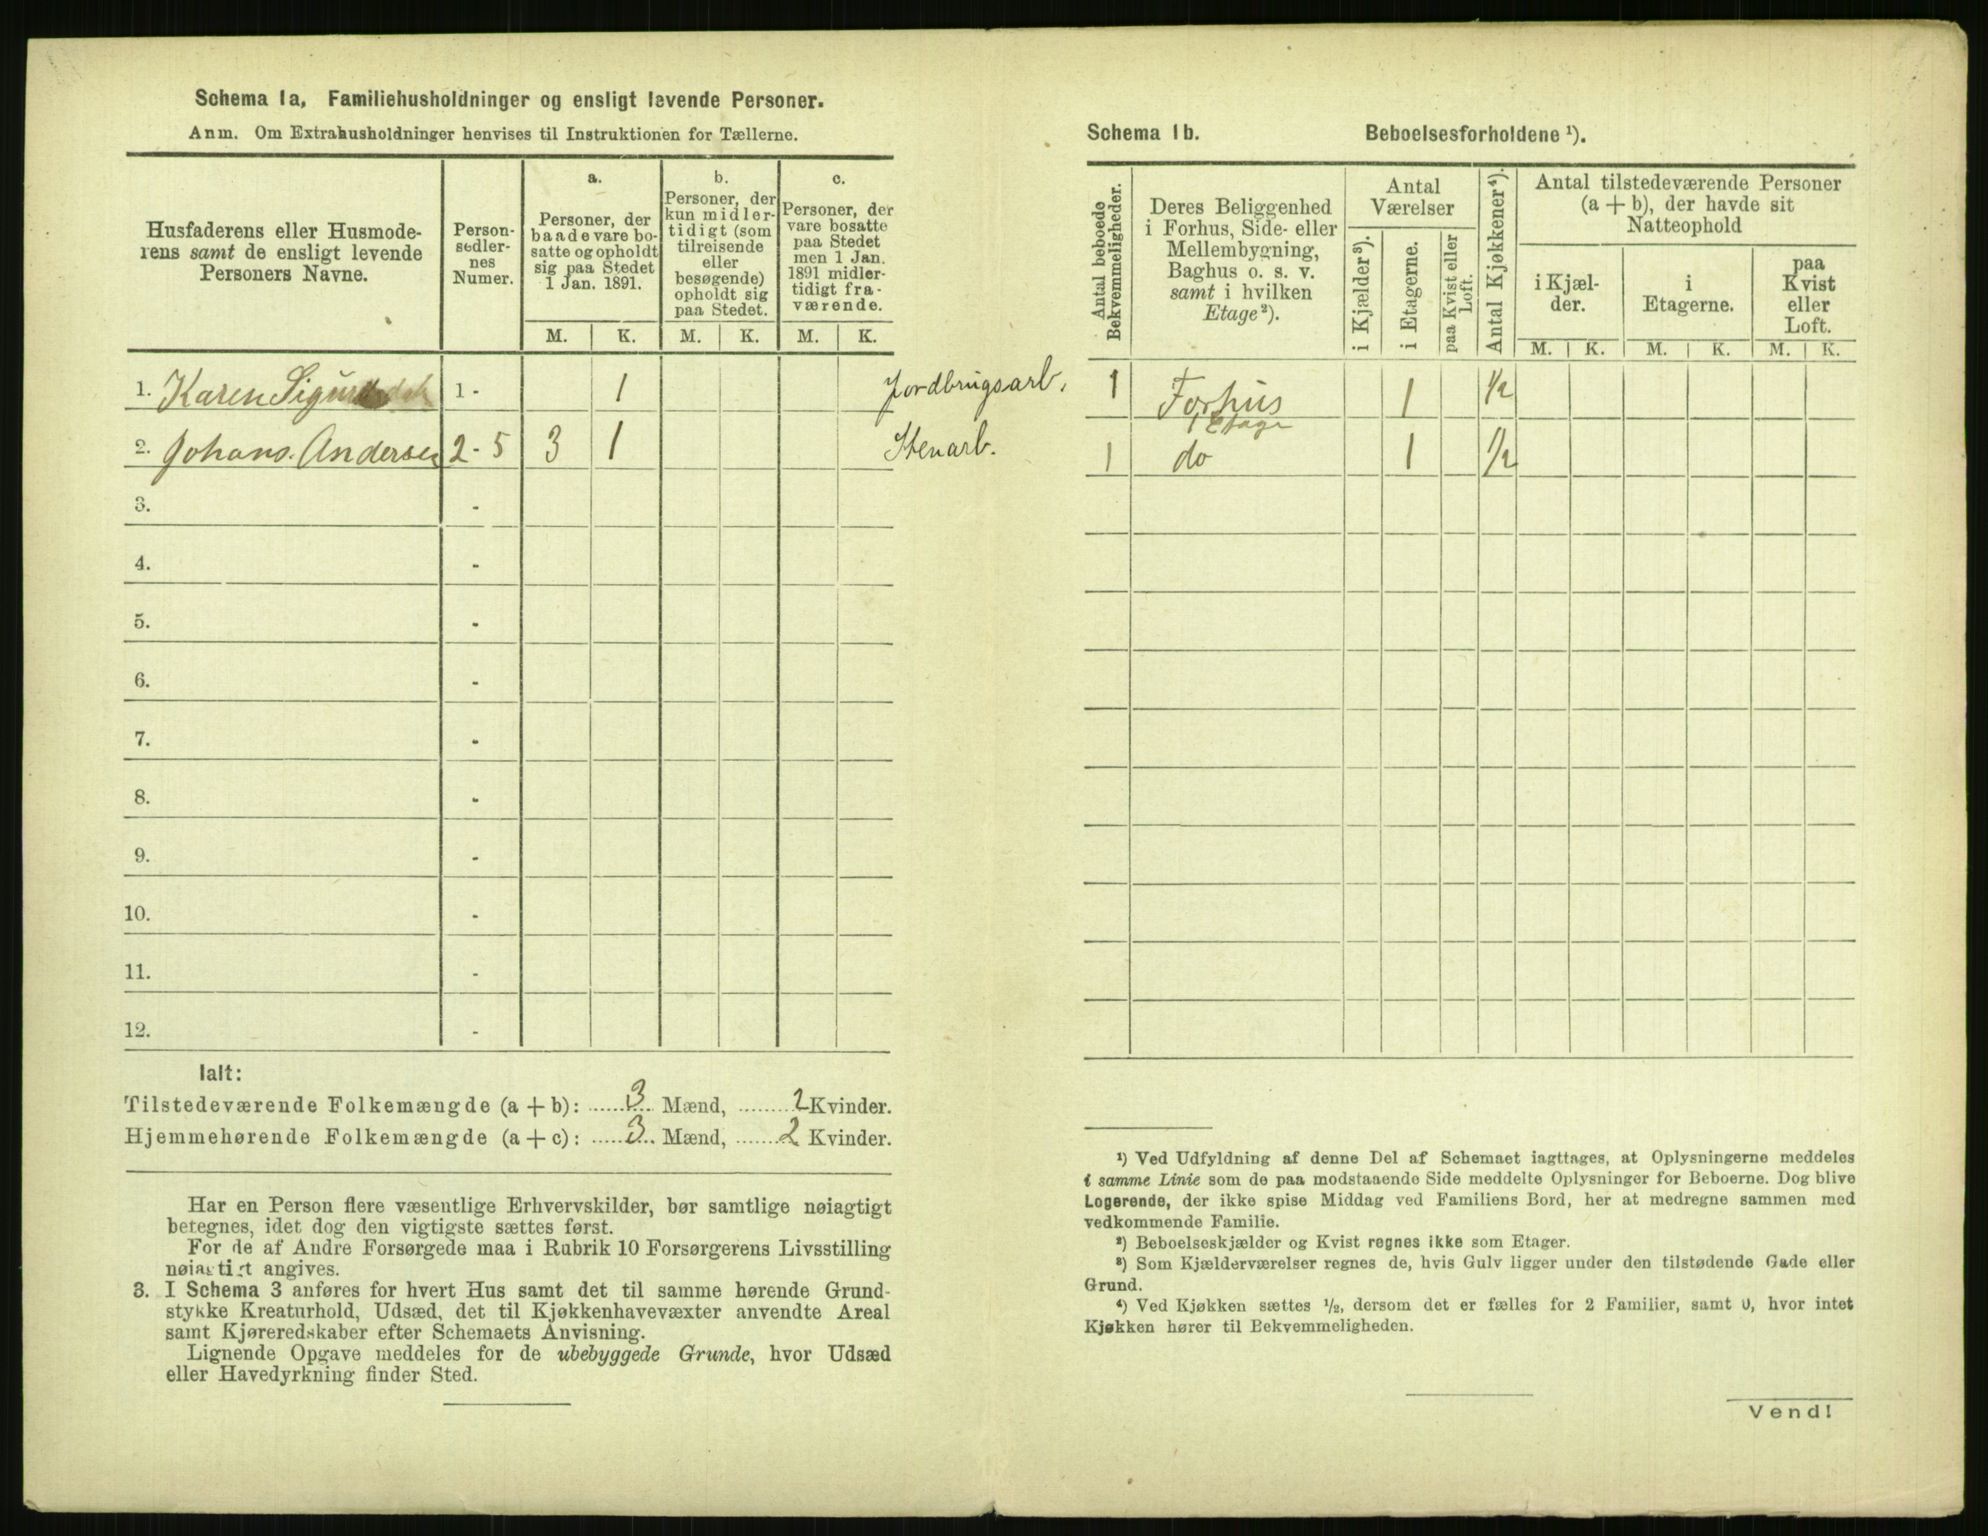 Schema 1a, Familiehusholdninger og ensligt levende Personer.
Anm. Om Extrahusholdninger henvises til Instruktionen for Tællerne.
Husfaderens eller Husmoderens samt de ensligt levende Personers Navne.
Personsedlernes Numer.
a.
Personer, der baade vare bosatte og opholdt sig paa Stedet 1 Jan. 1891.
b.
Personer, der kun midlertidigt (som tilreisende eller besøgende) opholdt sig paa Stedet.
c.
Personer, der vare bosatte paa Stedet men 1 Jan. 1891 midlertidigt fraværende.
M. K. M. K. M. K.
1. Karen 1 - 1 Jordbrugsarb.
2. Johans. Andersen 2 - 5 3 1 Stenarb.
3. -
4. -
5. -
6. -
7. -
8. -
9. -
10. -
11. -
12. -
Ialt:
Tilstedeværende Folkemængde (a + b): 3 Mænd, 2 Kvinder.
Hjemmehørende Folkemængde (a + c): 3 Mænd, 2 Kvinder.
Har en Person flere væsentlige Erhvervskilder, bør samtlige nøiagtigt
betegnes, idet dog den vigtigste sættes først.
For de af Andre Forsørgede maa i Rubrik 10 Forsørgerens Livsstilling
nøiagtigt angives.
3. I Schema 3 anføres for hvert Hus samt det til samme hørende Grund-
stykke Kreaturhold, Udsæd, det til Kjøkkenhavevæxter anvendte Areal
samt Kjøreredskaber efter Schemaets Anvisning.
Lignende Opgave meddeles for de ubebyggede Grunde, hvor Udsæd
eller Havedyrkning finder Sted.
Schema 1b. Beboelsesforholdene ¹).
Antal beboede Bekvemmeligheder.
Deres Beliggenhed i Forhus, Side- eller Mellembygning, Baghus o. s. v. samt i hvilken Etage ²).
Antal Værelser
i Kjælder ³).
i Etagerne.
paa Kvist eller Loft.
Antal Kjøkkener ⁴).
Antal tilstedeværende Personer (a + b), der havde sit Natteophold
i Kjælder.
i Etagerne.
paa Kvist eller Loft.
M. K. M. K. M. K.
1 Forhus 1 Etage 1 1/2
1 do 1 1/2
¹) Ved Udfyldning af denne Del af Schemaet iagttages, at Oplysningerne meddeles
i samme Linie som de paa modstaaende Side meddelte Oplysninger for Beboerne. Dog blive
Logerende, der ikke spise Middag ved Familiens Bord, her at medregne sammen med
vedkommende Familie.
²) Beboelseskjælder og Kvist regnes ikke som Etager.
³) Som Kjælderværelser regnes de, hvis Gulv ligger under den tilstødende Gade eller
Grund.
⁴) Ved Kjøkken sættes ½, dersom det er fælles for 2 Familier, samt 0, hvor intet
Kjøkken hører til Bekvemmeligheden.
Vend!